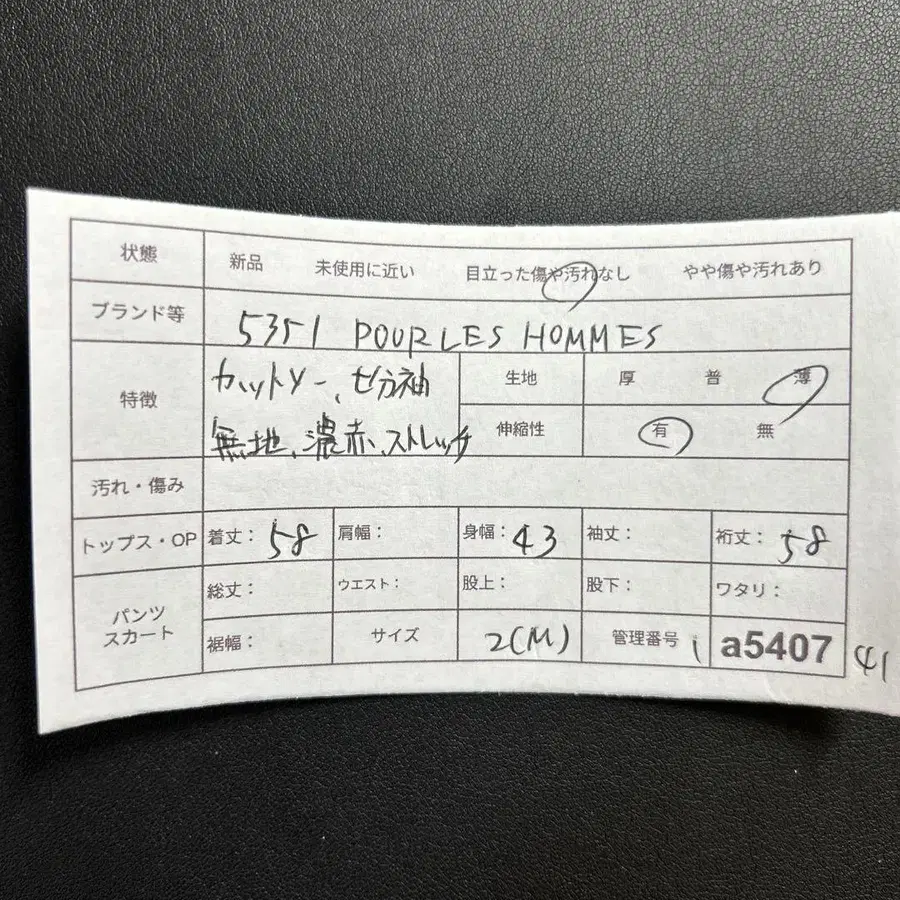 状態 新品 未使用に近い 目立った傷や汚れなし やや傷や汚れあり
ブランド等 5351 POUR LES HOMMES
特徴 カットソー、七分袖 生地 厚 普 薄
無地、濃赤、ストレッチ 伸縮性 有 無
汚れ・傷み
トップス・OP 着丈： 58 肩幅： 身幅： 43 袖丈： 裄丈： 58
パンツ スカート 総丈： ウエスト： 股上： 股下： ワタリ：
裾幅： サイズ 2(M) 管理番号 i a5407 41